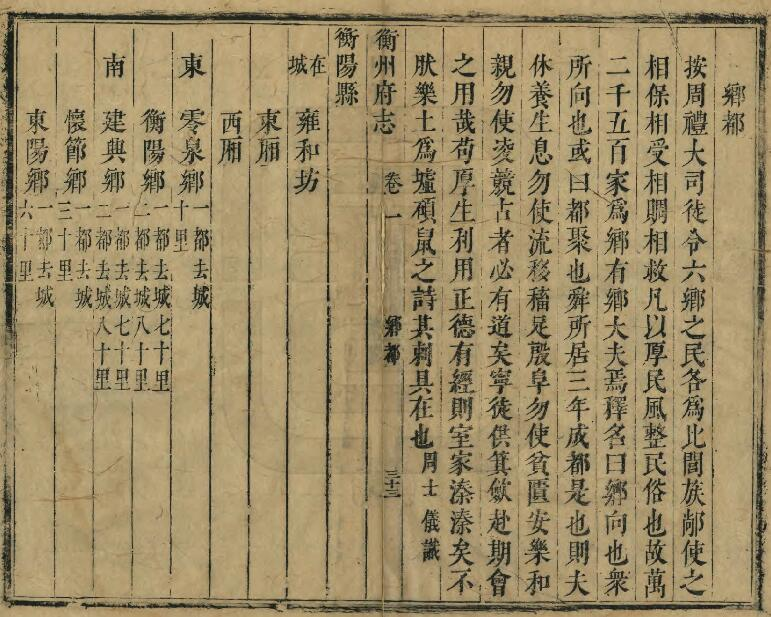 鄉都
按周禮大司徒令六鄉之民各爲比閭族鄰使之
相保相受相賙相救凡以厚民風整民俗也故萬
二千五百家爲鄉有鄉大夫焉釋名曰鄉向也衆
所向也或曰都聚也舜所居三年成都是也則夫
休養生息勿使流移穡足殷阜勿使貧匱安樂和
親勿使凌競占者必有道矣寧徒供箕歛赴期會
之用哉苟厚生利用正德有經則室家溱溱矣不
肰樂土爲墟碩鼠之詩其刺具在也周士儀識
衡州府志 卷一 鄉都 三十三
衡陽縣
在城 雍和坊
東厢
西厢
東 零泉鄉 一都去城十里
衡陽鄉 一都去城七十里二都去城八十里
南 建興鄉 一都去城七十里二都去城八十里
懷節鄉 一都去城三十里
東陽鄉 一都去城六十里